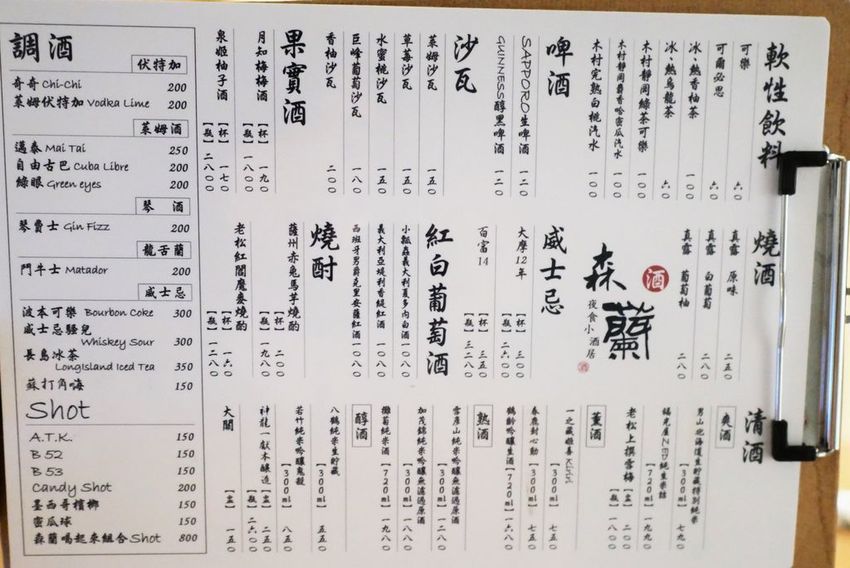 軟性飲料
可樂 六〇
可爾必思 六〇
冰、熱香柚茶 一〇〇
冰、熱烏龍茶 六〇
木村靜岡綠茶可樂 一〇〇
木村靜岡爵香哈密瓜汽水 一〇〇
木村完熟白桃汽水 一〇〇
啤酒
SAPPORO生啤酒 一二〇
GUINNESS醇黑啤酒 一二〇
沙瓦
萊姆沙瓦 一五〇
草莓沙瓦 一五〇
水蜜桃沙瓦 一五〇
巨峰葡萄沙瓦 一八〇
香柚沙瓦 二〇〇
果實酒
月知梅梅酒 【杯】一九〇
【瓶】一八〇〇
泉姬柚子酒 【杯】一七〇
【瓶】二八〇〇
燒酒
真露 原味 二五〇
真露 白葡萄 二八〇
真露 葡萄柚 二八〇
森蘭
酒
夜食小酒居
威士忌
大摩12年 【杯】三〇〇
【瓶】二六〇〇
百富14 【杯】三五〇
【瓶】三二八〇
紅白葡萄酒
小瓢蟲義大利夏多內白酒 一〇八〇
義大利亞堤利香緹紅酒 一〇八〇
西班牙男爵克里安薩紅酒 一〇八〇
燒酎
薩州赤兔馬芋燒酌 【杯】二〇〇
【瓶】一九八〇
老松紅閻魔麥燒酌 【杯】一六〇
【瓶】一二八〇
清酒
爽酒
男山北海道生貯藏特別純米
【300ml】七九〇
【720ml】一九八〇
老松上撰雪梅 【壺】二二〇
【瓶】一八〇〇
薰酒
一之藏姬善 【300ml】七五〇
春鹿封心動 【300ml】七五〇
鶴齡吟釀生酒 【720ml】一六八〇
熟酒
雪彥山純米吟釀無濾過原酒
【300ml】一二八〇
加茂錦純米吟釀無濾過原酒
【300ml】
攤萄純米酒 【720ml】一九八〇
醇酒
八鶴純米生貯藏 【300ml】五五〇
若竹純米吟釀鬼殺 【300ml】八五〇
神龍一獻本釀造 【壺】二五〇
【瓶】二六〇〇
大關 【壺】一五〇
調酒
伏特加
奇奇 Chi-Chi 200
萊姆伏特加 Vodka Lime 200
萊姆酒
邁泰 Mai Tai 250
自由古巴 Cuba Libre 200
綠眼 Green eyes 200
琴 酒
琴爵士 Gin Fizz 200
龍舌蘭
鬥牛士 Matador 200
威士忌
波本可樂 Bourbon Coke 300
威士忌騷兒
Whiskey Sour 300
長島冰茶
LongIsland Iced Tea 350
蘇打角嗨 150
Shot
A.T.K. 150
B 52 150
B 53 150
Candy Shot 200
墨西哥檳榔 150
蜜瓜球 150
森蘭喝起來組合Shot 800